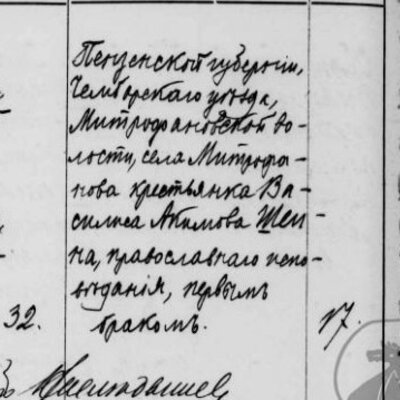 Пензенской губернiи,
Чембарскаго уѣзда,
Митрофановской во-
лости, села Митрофа-
нова крестьянка Ва-
силиса Акимова
на, православнаго испо-
вѣданiя, первымъ
32. бракомъ. 17.